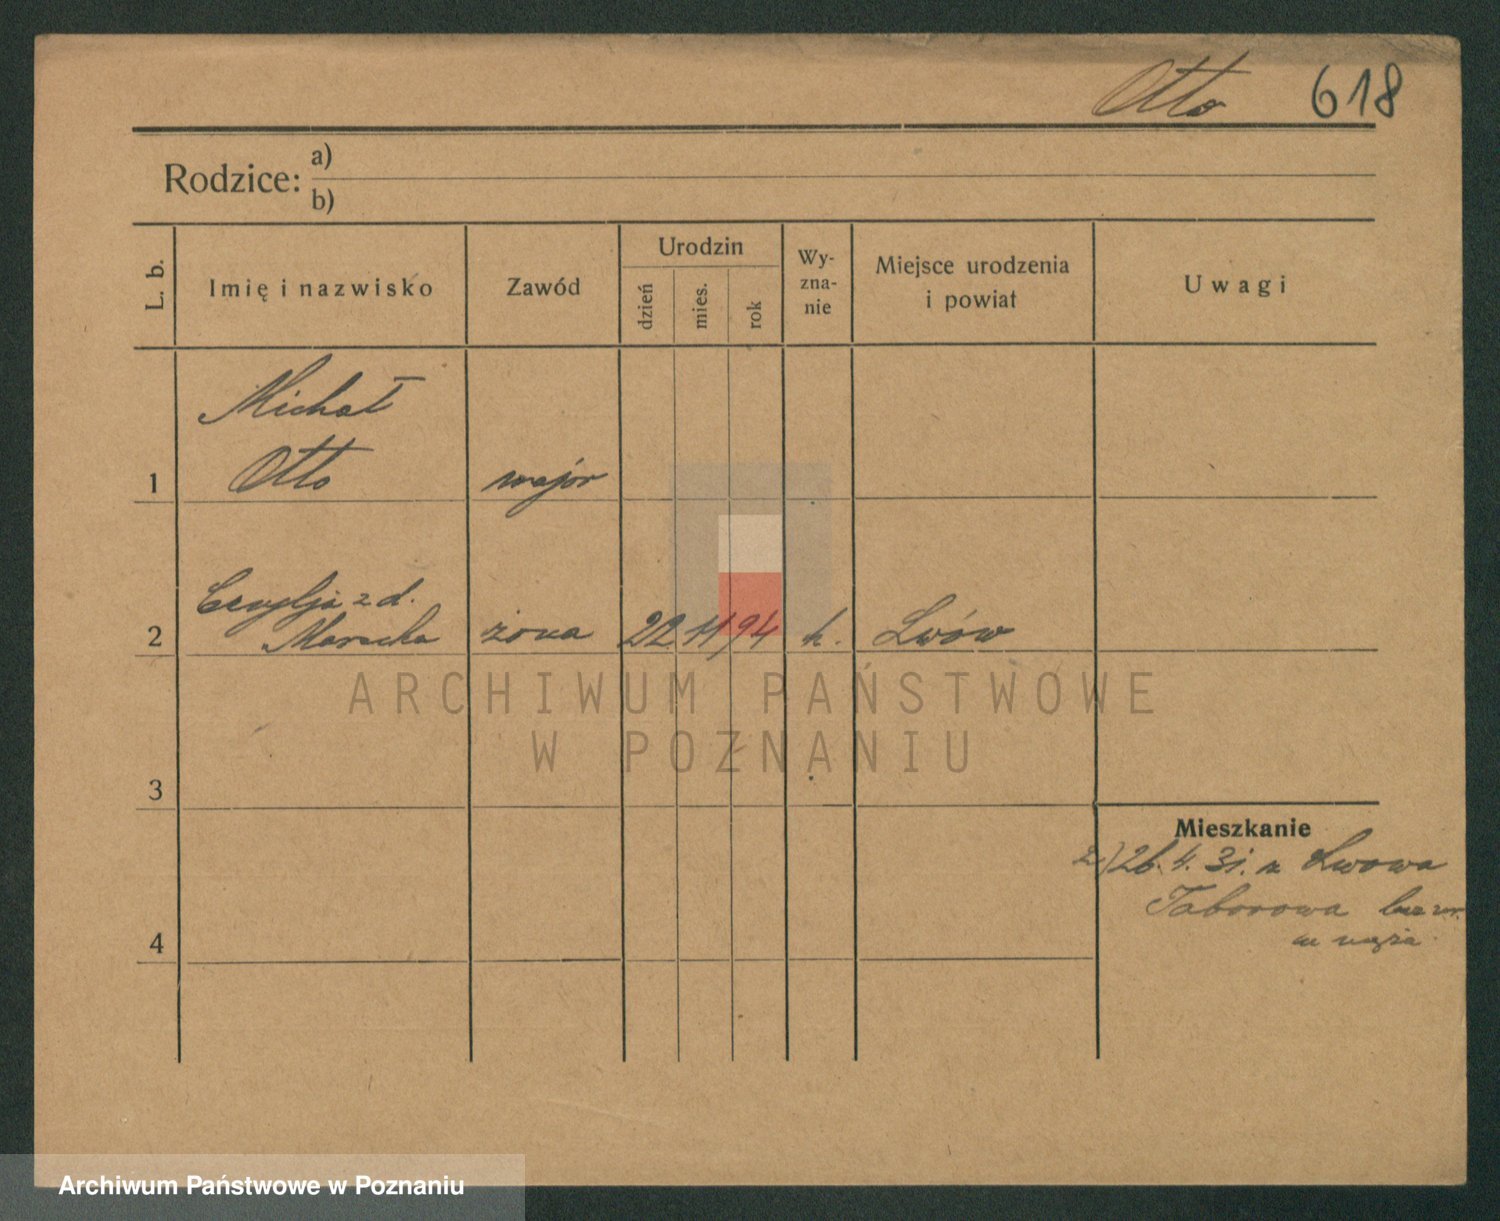 Otto 618
Rodzice: a)
b)
L. b.
Imię i nazwisko
Zawód
Urodzin
dzień
mies.
rok
Wy-
zna-
nie
Miejsce urodzenia
i powiat
Uwagi
Michał
1 Otto major
z d.
2 żona 22 11 94 k. Lwów
ARCHIWUM PAŃSTWOWE
W POZNANIU
3
Mieszkanie
2) 26. 4. 31. z Lwowa
Taborowa
4 u męża
Archiwum Państwowe w Poznaniu